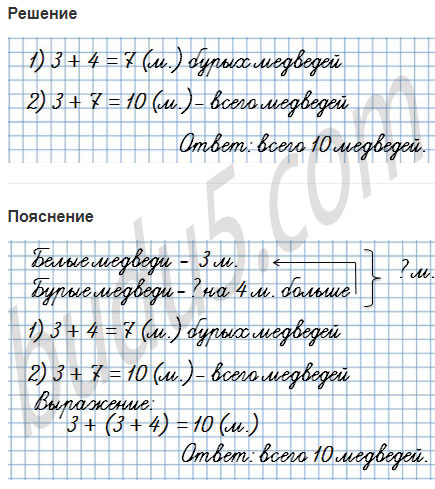 Решение
1) 3 + 4 = 7 (м.) бурых медведей
2) 3 + 7 = 10 (м.) – всего медведей
Ответ: всего 10 медведей.
Пояснение
Белые медведи – 3 м.
Бурые медведи – ? на 4 м. больше
? м.
1) 3 + 4 = 7 (м.) бурых медведей
2) 3 + 7 = 10 (м.) – всего медведей
Выражение:
3 + (3 + 4) = 10 (м.)
Ответ: всего 10 медведей.
budu5.com